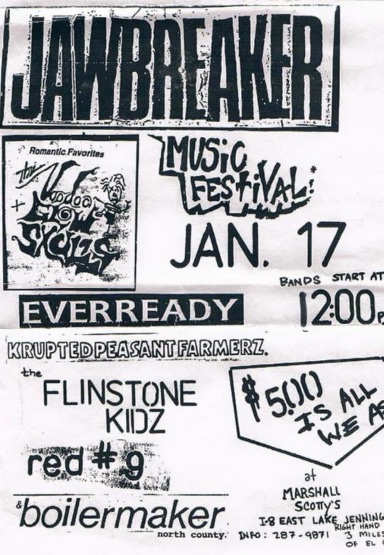 JAWBREAKER
Romantic Favorites
the
VOODOO
GLOW
SKULLS
+
MUSIC
FESTIVAL:
JAN. 17
BANDS START AT
12:00
EVERREADY
KRUPTED PEASANT FARMERZ.
the
FLINSTONE
KIDZ
$5.00
IS ALL
WE AS
red #9
&
boilermaker
north county.
at
MARSHALL
SCOTTY'S
I-8 EAST LAKE JENNING
RIGHT HAND
INFO: 287-9871
3 MILES
OF EL